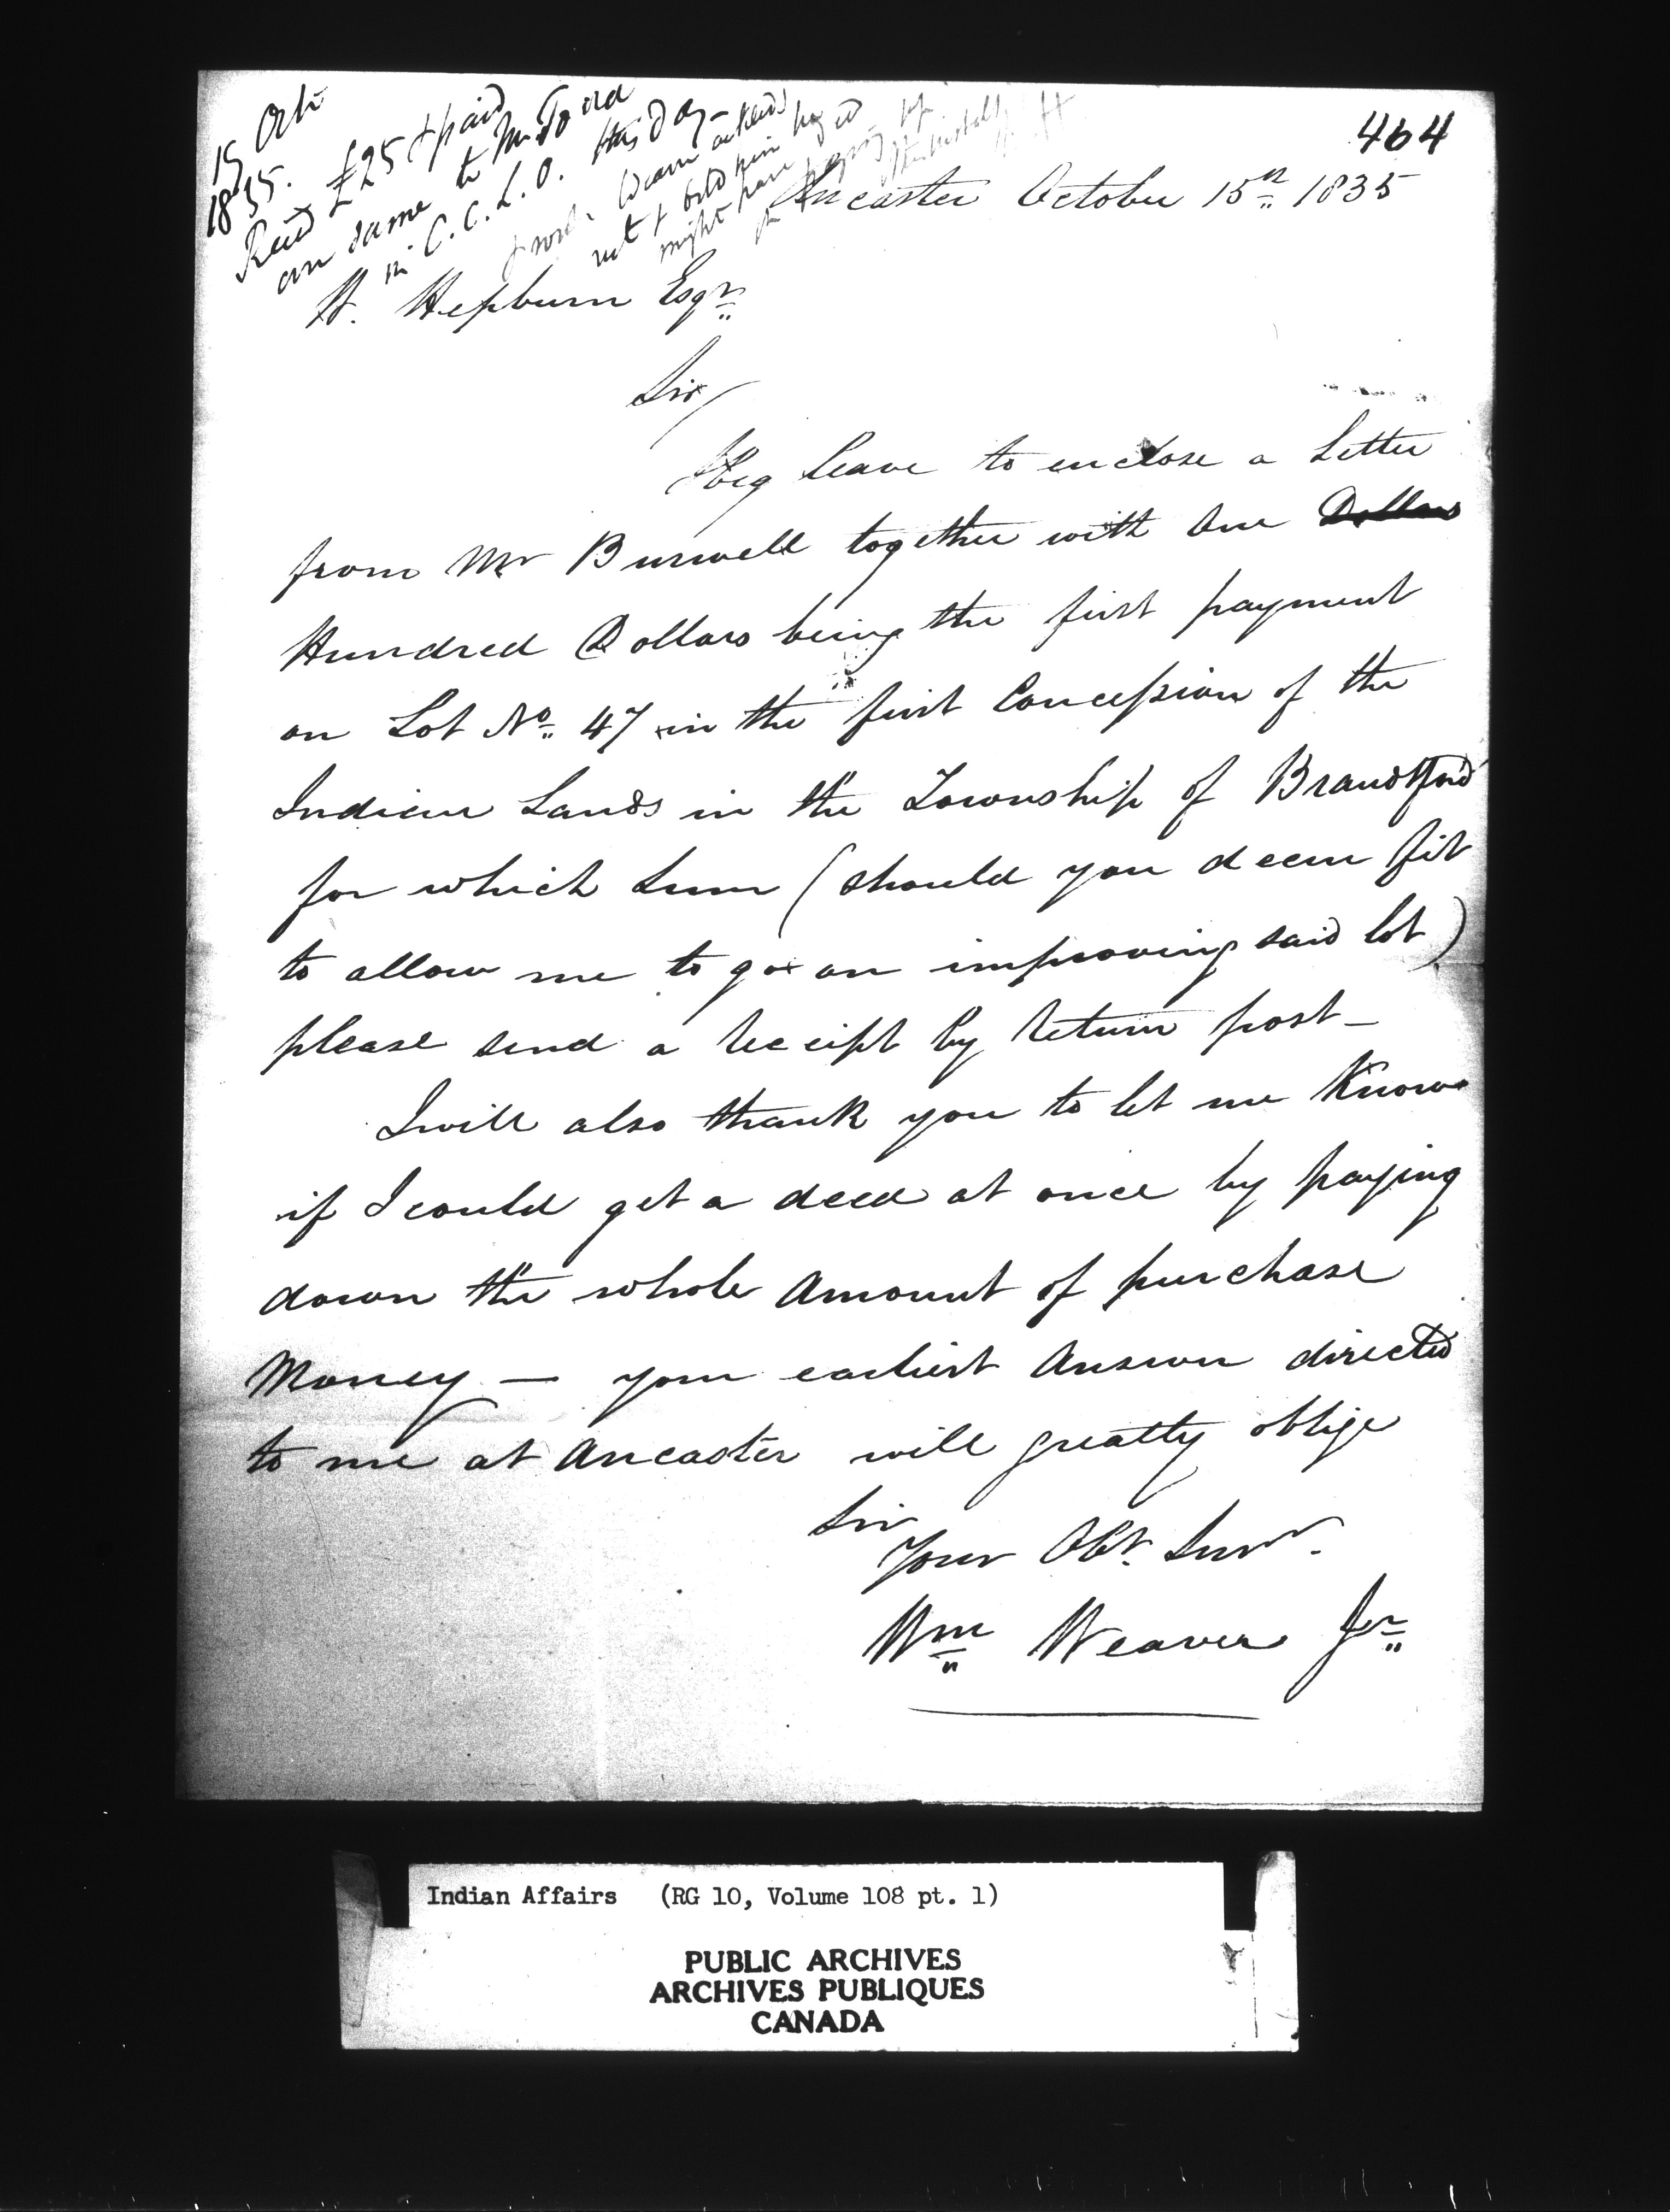 464
15 Octr
1835.
Recd £25 & paid
over same to Mr
in C.C.L.O. this day
& told him he
might have
Ancaster October 15th 1835
Hepburn Esqr
Sir/
I beg leave to enclose a Letter
from Mr Burwell together with One Dollars
Hundred Dollars being the first payment
on Lot No 47 in the first Concession of the
Indian Lands in the Township of Brandtford
for which Sum (should you deem fit
to allow me to go on improving said lot)
please send a receipt by return post—
I will also thank you to let me Know
if I could get a deed at once by paying
down the whole Amount of purchase
Money — your earliest Answer directed
to me at Ancaster will greatly oblige
Sir
Your Obt. Servt.
Wm Weaver Jr
Indian Affairs (RG 10, Volume 108 pt. 1)
PUBLIC ARCHIVES
ARCHIVES PUBLIQUES
CANADA